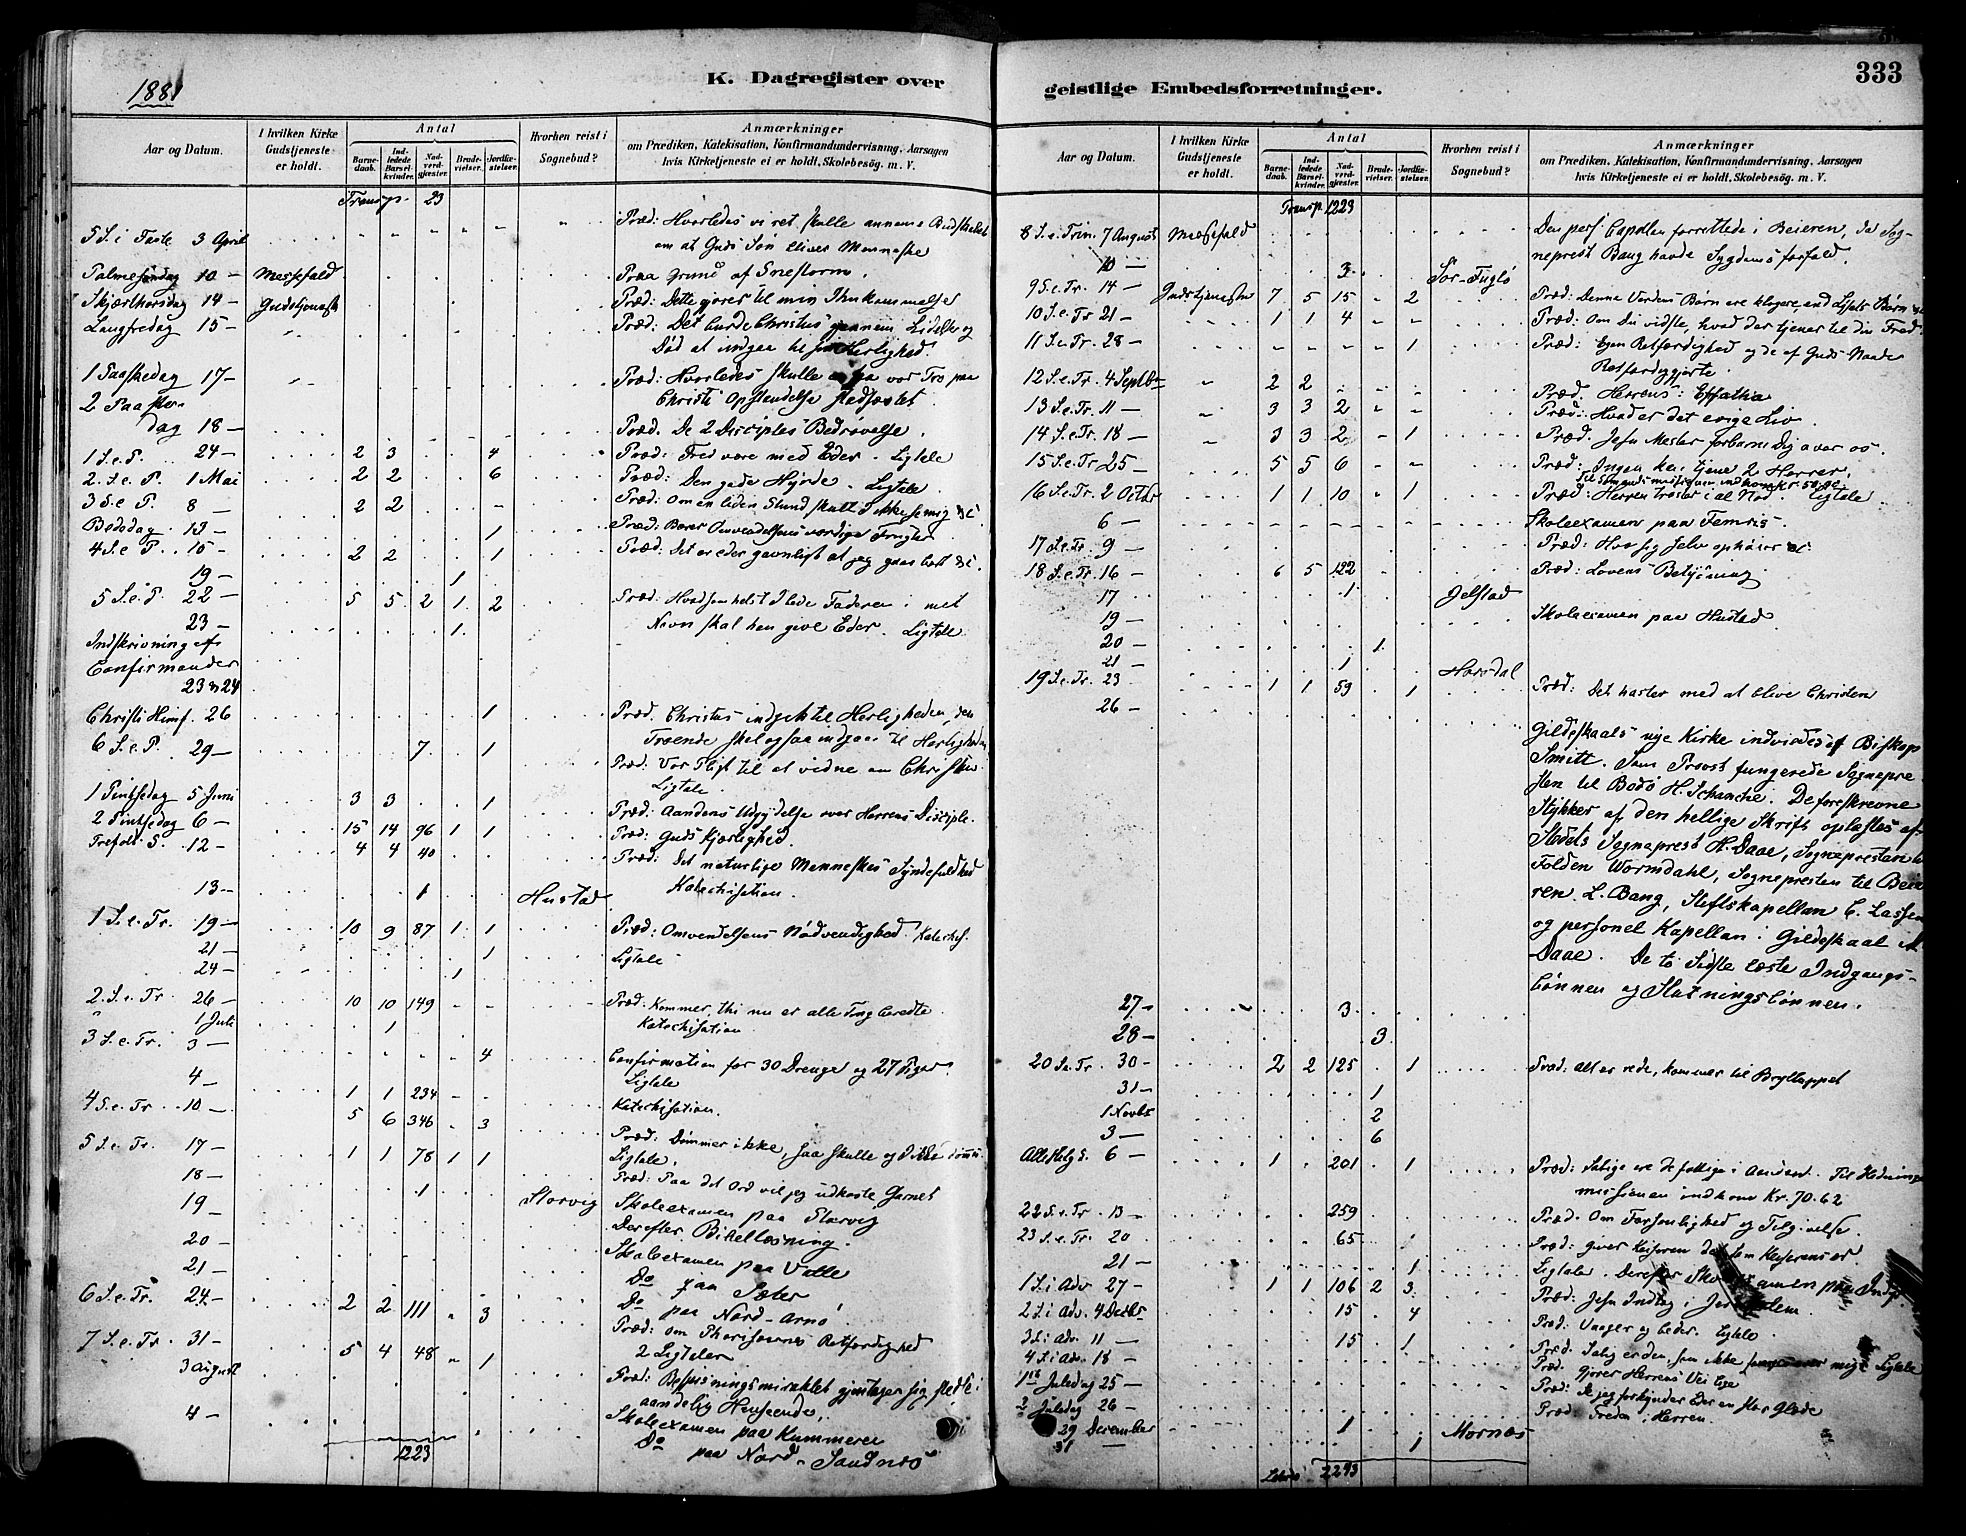 1881
K. Dagregister over
Aar og Datum.
I hvilken Kirke Gudstjeneste er holdt.
Antal
Barne-daab.
Ind-ledede Barsel-kvinder.
Nad-verd-gjæster.
Brude-vielser.
Jordfæ-stelser.
Hvorhen reist i Sognebud?
Anmærkninger
om Prædiken, Katekisation, Konfirmandundervisning, Aarsagen
hvis Kirketjeneste ei er holdt, Skolebesög. m. V.
Transp. 23
5 S. i Faste 3 April Præd: Hvorledes vi ret skulle annamme Budskabet
om at Guds Søn bliver Menneske
Palmesøndag 10 — Messefald Paa Grund af Snestorm.
Skjærthorsdag 14 — Gudstjeneste Præd: Dette gjører til min Ihukommelse
Langfredag 15 — Præd: Det burde Christus gjennem Lidelse og
Død at indgaa til sin Herlighed.
1 Paaskedag 17 — Præd: Hvorledes skulle vi faa vor Tro paa
Christi Opstandelse stadfæstet
2 Paaske-
dag 18 — Præd. De 2 Disciples Bedrøvelse.
1 S. e. P. 24 — 2 3 4 Præd: Fred være med Eder. Ligtale
2. S. e. P. 1 Mai 2 2 6 Præd: Den gode Hyrde. Ligtale
3 S. e P. 8 — 2 2 Præd: Om en liden Stund skull I ikke se mig &c.
Bededag 13 — 1 Præd: Bærer Omvendelsens værdige Frugter
4 S. e P. 15 — 2 2 1 Præd: Det er eder gavnligt at jeg gaar bort &c.
19 — 1
5 S. e. P. 22 — 5 5 2 1 2 Præd: Hvadsomhelst I bede Faderen i mit
23 — 1 Navn skal han give Eder. Ligtale
Indskrivning af
Confirmander
23 & 24
Christi Himf. 26 1 Præd. Christus indgik til Herligheden, den
Troende skal ogsaa indgaa til Herligheden
6 S. e. P. 29 — 7 1 Præd: Vor Pligt til at vidne om Christus.
Ligtale.
1 Pintsedag 5 Juni 3 3 1 Præd: Aandens Udgydelse over Herrens Disciple.
2 Pintsedag 6 — 15 14 96 1 1 Præd: Guds Kjærlighed.
Trefold. S. 12 — 4 4 40 Præd: Det naturlige Menneskes Syndefuldhed
Katechisation.
13 — 1 Hustad
1 S. e. Tr. 19 — 10 9 87 1 1 Præd: Omvendelsens Nødvendighed. Katechis.
21 — 1 Ligtale
24 — 1
2. S. e. Tr. 26 — 10 10 149 Præd: Kommer, thi nu er alle Ting beredte
1 Juli 1 Katechisation.
3 S. e. Tr. 3 — 4 Confirmation for 30 Drenge og 27 Piger
Ligtale
4 — 1 1 234 Katechisation.
4 S. e. Tr. 10 — 5 6 346 3 Præd: Dømmer ikke, saa skulle og I ikke dømm.
Ligtale.
5 S. e. Tr. 17 — 1 1 78 1 1 Præd: Paa dit Ord vil jeg udkaste Garnet
18 — 1 Storvig Skoleexamen paa Storvig
19 — Derefter Bibellæsning.
20 — Skoleexamen paa Valle
21 — Do paa Sæter
Do paa Nord-Arnø
6 S. e. Tr. 24 — 2 2 111 3 Præd: om Pharisæernes Retfærdighed
2 Ligtaler
7 S. e. Tr. 31 — 5 4 48 1 Præd: Bespisningsmiraklet gjentager sig stedse i
aandelig Henseende.
3 August Skoleexamen paa Kummeren
4 — Do paa Nord-Sandnes
1223
geistlige Embedsforretninger.
333
Aar og Datum.
I hvilken Kirke Gudstjeneste er holdt.
Antal
Barne-daab.
Ind-ledede Barsel-kvinder.
Nad-verd-gjæster.
Brude-vielser.
Jordfæ-stelser.
Hvorhen reist i Sognebud?
Anmærkninger
om Prædiken, Katekisation, Konfirmandundervisning, Aarsagen
hvis Kirketjeneste ei er holdt, Skolebesög. m. V.
Transp. 1223
8 S. e. Trin. 7 August Messefald Den pers. Capellan forrettede i Beieren, da Sog-
nepræst Bang havde Sygdomsforfald.
10 — 3 Sør-Fuglø
9 S. e. Tr. 14 — Gudstjeneste 7 5 15 2 Præd: Denne Verdens Børn ere klogere, end Lysets Børn &c
10 S. e. Tr 21 — 1 1 4 Præd: Om Du vidste, hvad der tjener til din Fred.
11 S. e. Tr. 28 — 1 Præd: Egen Retfærdighed og de af Guds Naade
Retfærdiggjorte.
12 S. e. Tr. 4 Septbr 2 2 Præd. Herrens: Effatha
13 S. e. Tr. 11 — 3 3 2 Præd: Hvad er det evige Liv.
14 S. e Tr. 18 — 3 3 2 1 Præd. Jesu Mester forbarm Dig over os.
15 S. e. Tr. 25 — 5 5 6 Præd: Ingen kan tjene 2 Herrer.
til Sømandsmissionen indkom kr.
16 S. e. Tr. 2 Octbr 1 1 10 1 Præd: Herren trøster i al Nød Ligtale.
6 — Skoleexamen paa Femris.
17 S. e. Tr. 9 — Præd: Hvo sig selv ophøier &c
18 S. e. Tr. 16 — 6 5 122 Præd: Lovens Betydning
17 1 Jelstad
19 — Skoleexamen paa Hustad
20 — 1
21 — 1 Horsdal
19 S. e. Tr. 23 1 1 59 1 Præd: Det haster med at blive Christen
26 — Gildeskaals nye Kirke indviedes af Biskop
Smitt. Som Provst fungerede Sognepre-
sten til Bodø H. Schanche. De foreskrevne
Stykker af den hellige Skrift oplæstes af
Stedets Sognepræst H. Daae, Sognepresten til
Folden Wormdahl, Sognepresten til Beie-
ren. L. Bang, Stiftskapellan C. Lassen
og personel Kapellan i Gildeskaal
Daae. De to Sidste læste Indgangs-
bønnen og Slutningsbønnen.
27 — 3
28 — 3
20 S. e. Tr. 30 — 2 2 125 1 Præd: Alt er rede, kommer til Bryllupet
31 — 1
1 Novbr 2
3 — 6
Alle Helg S. 6 — 1 201 1 Præd: Salige ere de fattige i Aanden. Til Hednings-
missionen indkom Kr. 70.62
22 S. e. Tr. 13 — 259 Præd. Om Forsonlighed og Tilgivelse.
23 S. e. Tr. 20 65 Præd: Giver Keiseren det som Keiserens er
21 — 1 Ligtale. Derefter Skoleexamen paa
1 S. i Adv. 27 — 1 1 106 2 3 Præd: Jesu Indtog i Jerusalem.
2 S. i Adv. 4 Decbr 15 4 Præd: Vaager og beder. Ligtale.
3 S. i Adv. 11 — 15 1 Præd. Salig er den, som ikke forarges over mig. Ligtale
4 S. i Adv. 18 — Præd: Gjører Herrens Vei lige
1ste Juledag 25 — Præd: Se jeg forkynder Eder en stor Glæde
2 Juledag 26 — Præd: Freden i Herren.
29 December 1 Mornæs
31 — 1
Latus 2293